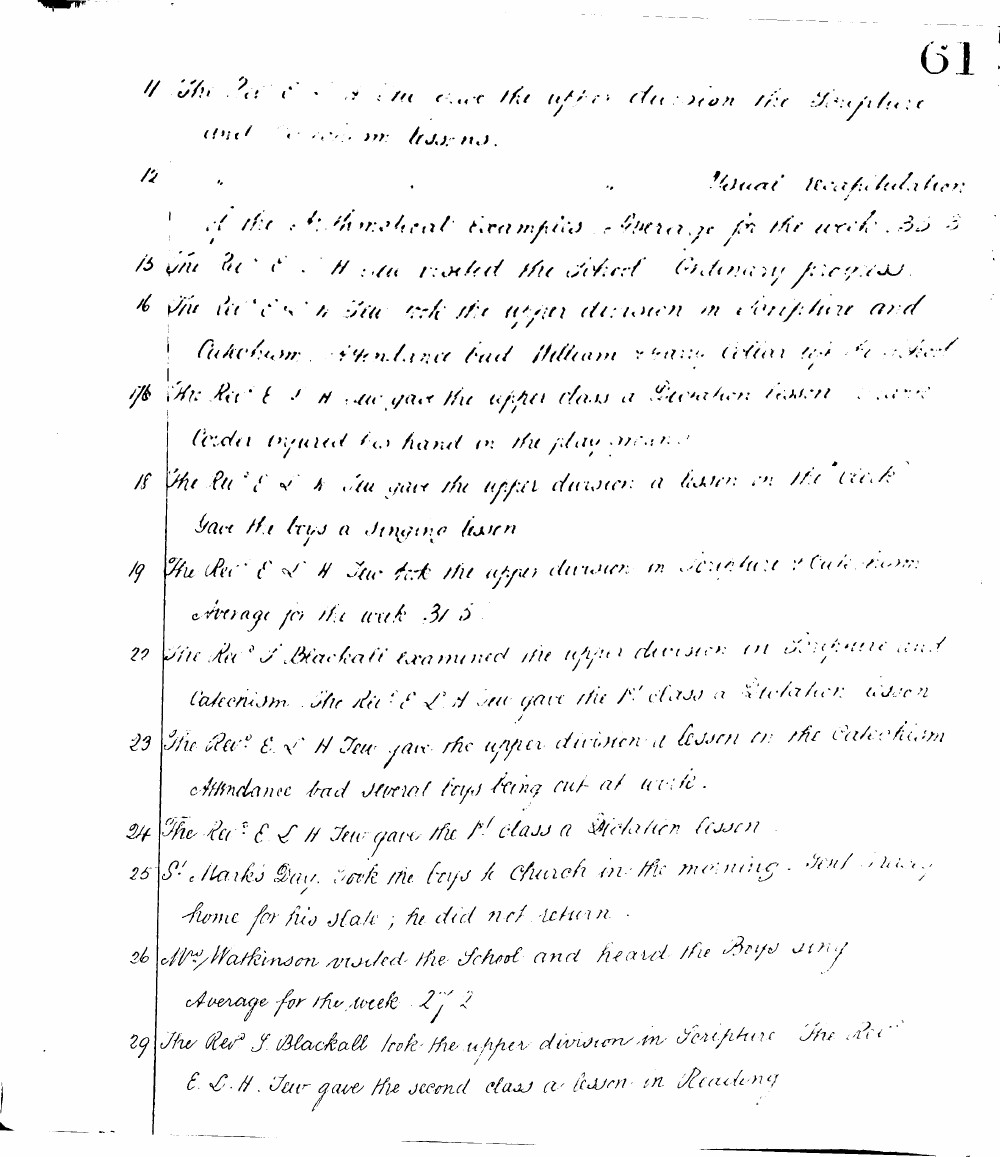 61
11 The Revd E L H Tew gave the upper division the Scripture
and Catechism lessons.
12 " " " Usual recapitulation
of the Arithmetical Examples Average for the week 33 3
15 The Revd E L H Tew visited the School Ordinary progress.
16 The Revd E L H Tew took the upper division in Scripture and
Catechism. Attendance bad William Collar left the School
17 The Revd E L H Tew gave the upper class a Dictation lesson
Corder injured his hand in the play ground
18 The Revd E L H Tew gave the upper division a lesson on the "Creed"
Gave the boys a singing lesson
19 The Revd E L H Tew took the upper division in Scripture & Catechism
Average for the week 31 5
22 The Revd S Blackall examined the upper division in Scripture and
Catechism. The Revd E L H Tew gave the 1st class a Dictation lesson
23 The Revd E. L H Tew gave the upper division a lesson on the Catechism
Attendance bad several boys being out at work.
24 The Revd E L H Tew gave the 1st class a Dictation lesson
25 St Mark's Day. Took the boys to Church in the morning. Sent
home for his slate; he did not return.
26 Mrs Watkinson visited the School and heard the Boys sing
Average for the week 27 2
29 The Revd S. Blackall took the upper division in Scripture The Revd
E. L. H. Tew gave the second class a lesson in Reading